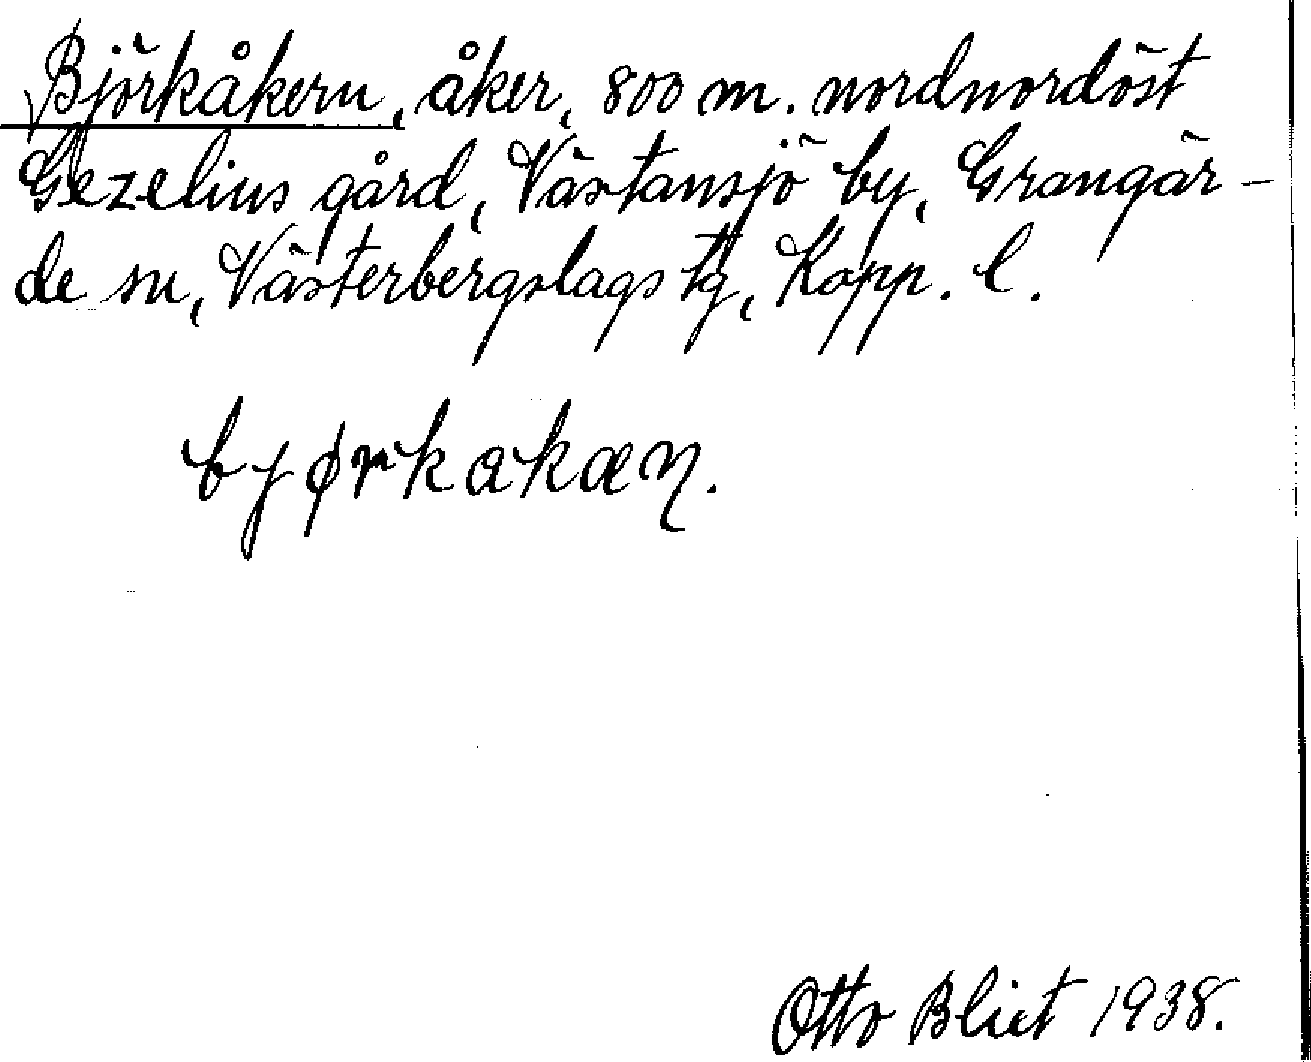 Björkåkern, åker, 800 m. nordnordöst
Gezelius gård, Västansjö by, Grangär-
de sn, Västerbergslags tg, Kopp. l.
bjørkakæɳ.
Otto Blixt 1938.